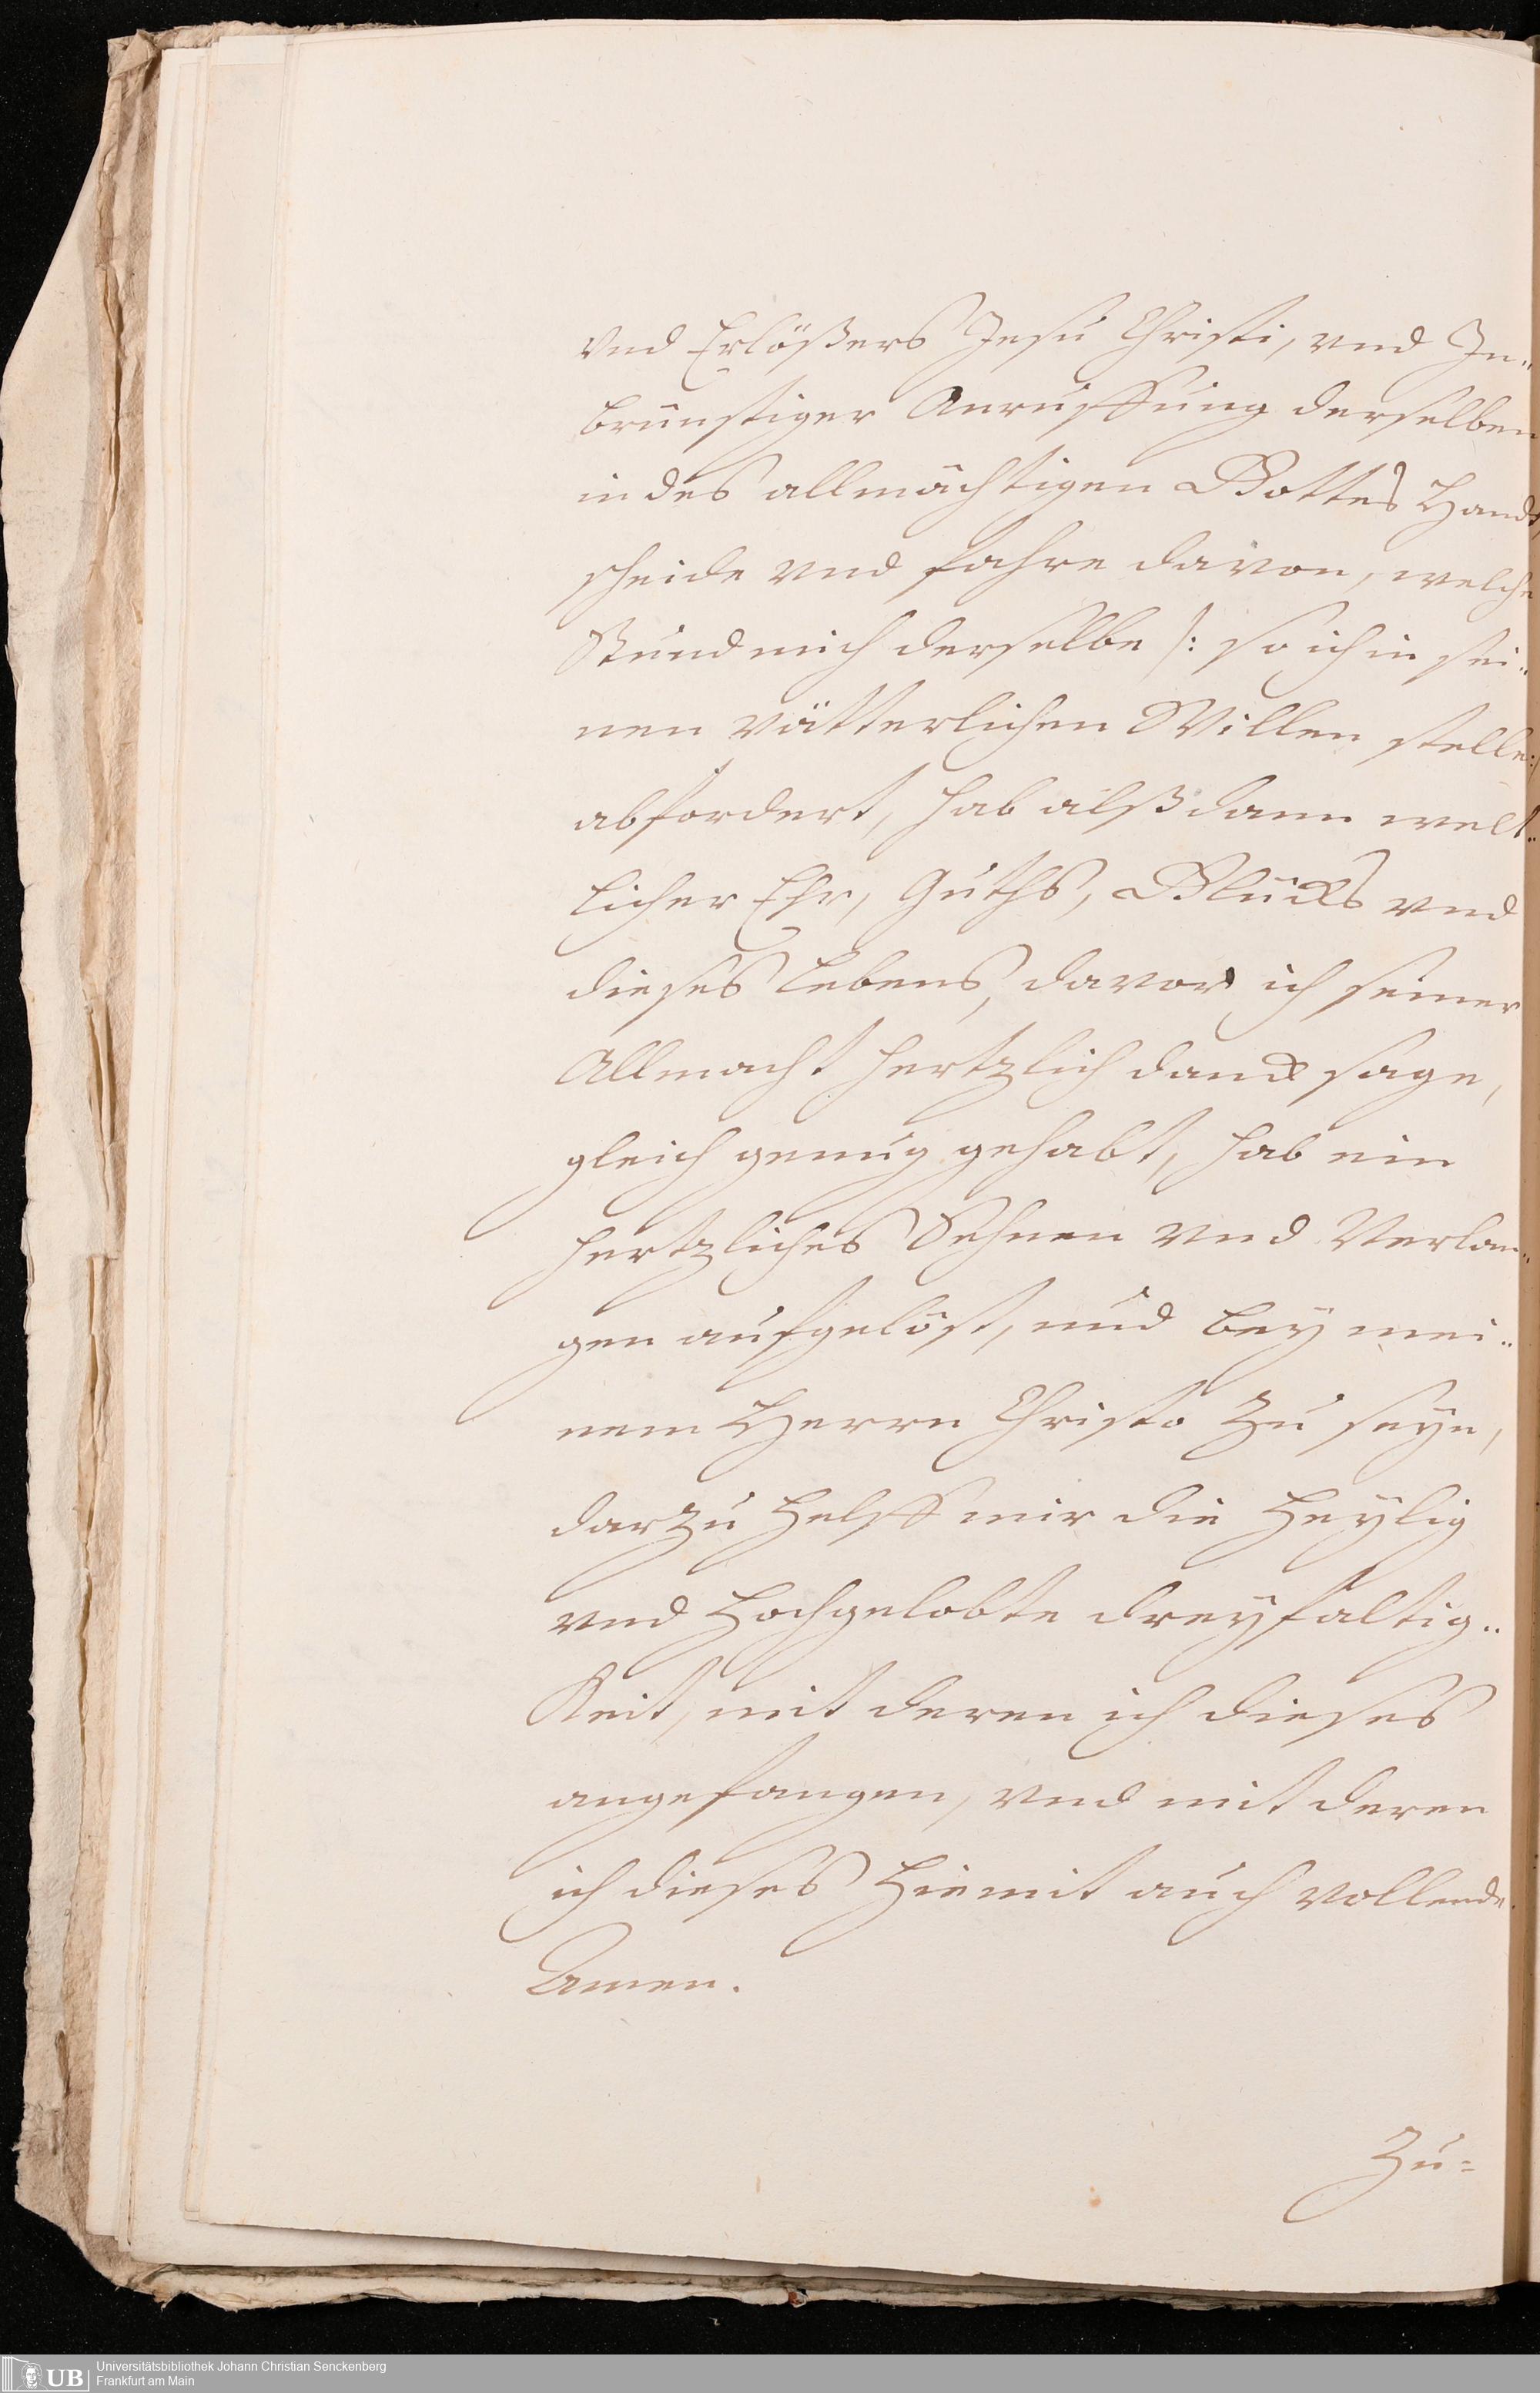 vnd Erlößers Jesu Christi, vnd In¨
brünstiger Anruffung derselben
in des allmächtigen Gottes Handt,
scheide vnd fahre davon, welche
Stund mich derselbe /: so ich in sei¨
nen vätterlichen Willen stelle :/
abfordert, hab alßdann welt¨
licher Ehr, Guths, Glücks vnd
dieses Lebens, davor ich seiner
Allmacht hertzlich danck sage,
gleich genug gehabt, hab ein
hertzliches Sehnen vnd Verlan¨
gen aufgelöst, und bey mei¨
nem Herrn Christo zu seyn,
darzu helff mir die Heylig
vnd Hochgelobte dreyfaltig¨
Keit, mit deren ich dieses
angefangen, vnd mit deren
ich dieses hiemit auch vollende.
Amen.
Zu=
UB
Universitätsbibliothek Johann Christian Senckenberg
Frankfurt am Main